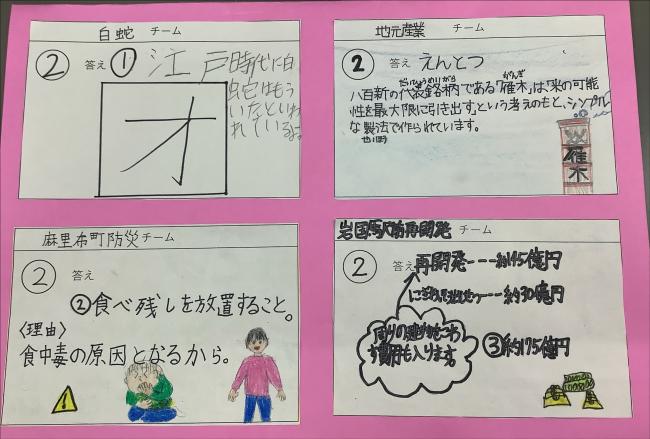 白蛇 チーム
②
答え ① 江戸時代に白
蛇はもう
いたといわ
れているよ。
オ
地元産業 チーム
②
答え えんとつ
だいひょうめいがら
がんぎ
八百新の代表銘柄である「雁木」は「米の可能
性を最大限に引き出す」という考えのもと、シンプル
な製法で作られています。
せいほう
雁木
麻里布町防災 チーム
②
答え
②食べ残しを放置すること。
〈理由〉
食中毒の原因となるから。
岩国駅前再開発 チーム
②
答え 再開発---約145億円
---約30億円
周りの建物をこわ
す費用も入ります。
③約175億円